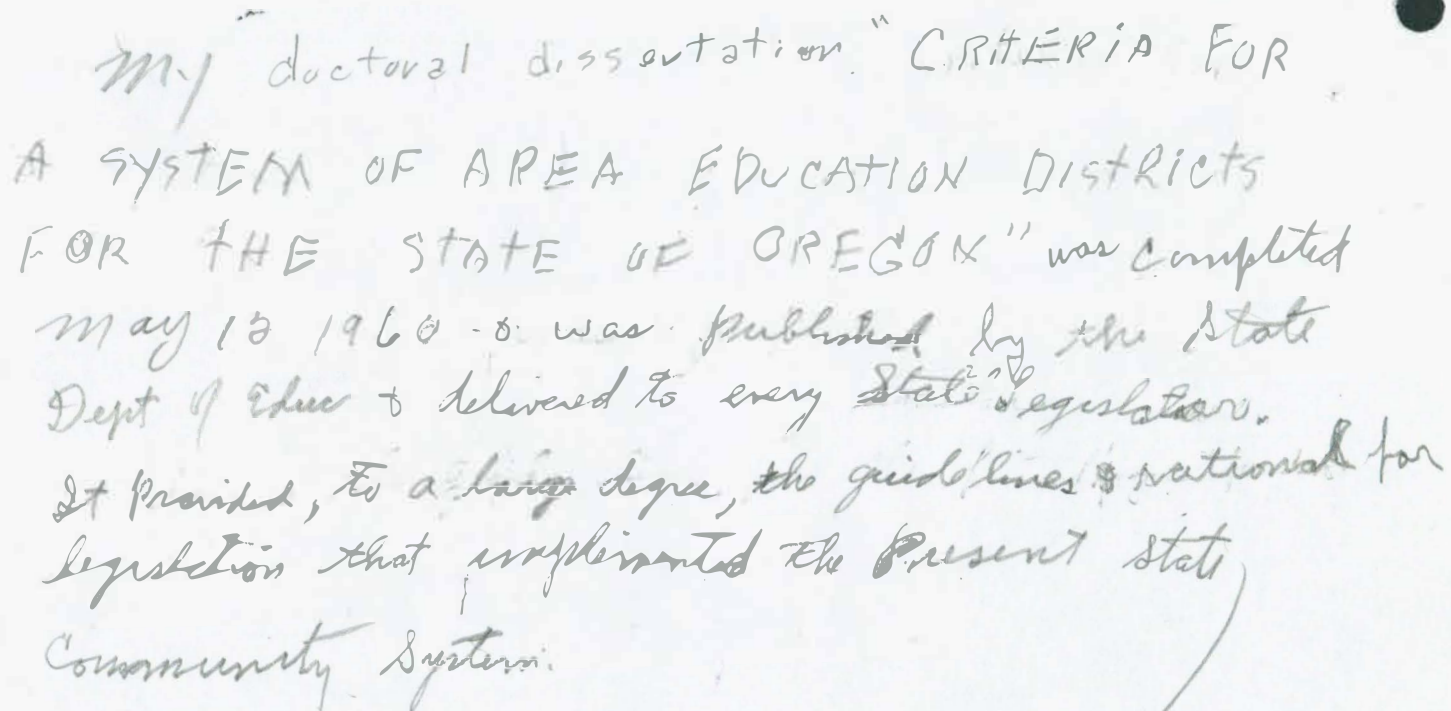 My doctoral dissertation "CRITERIA FOR
A SYSTEM OF AREA EDUCATION DISTRICTS
FOR THE STATE OF OREGON" was completed
May 13 1960 & was published by the State
Dept of Educ & delivered to every State legislator.
It Provided, to a large degree, the guidelines & rational for
legislation that implimented the Present state
Community System.